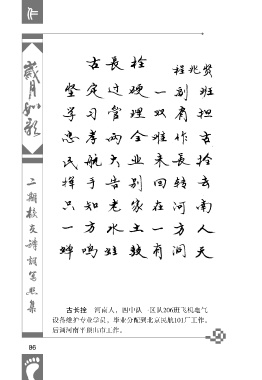 歲月如歌
二期校友诗词写照集
古長拴
程兆贤
坚定过硬一副班
学习管理双肩担
忠孝两全难作古
民航大业来長拴
挥手告别回转去
只知老家在河南
一方水土一方人
蝉鸣蛙鼓有洞天
古长拴 河南人，四中队一区队206班飞机电气
设备维护专业学员。毕业分配到北京民航101厂工作，
后调河南平顶山市工作。
86